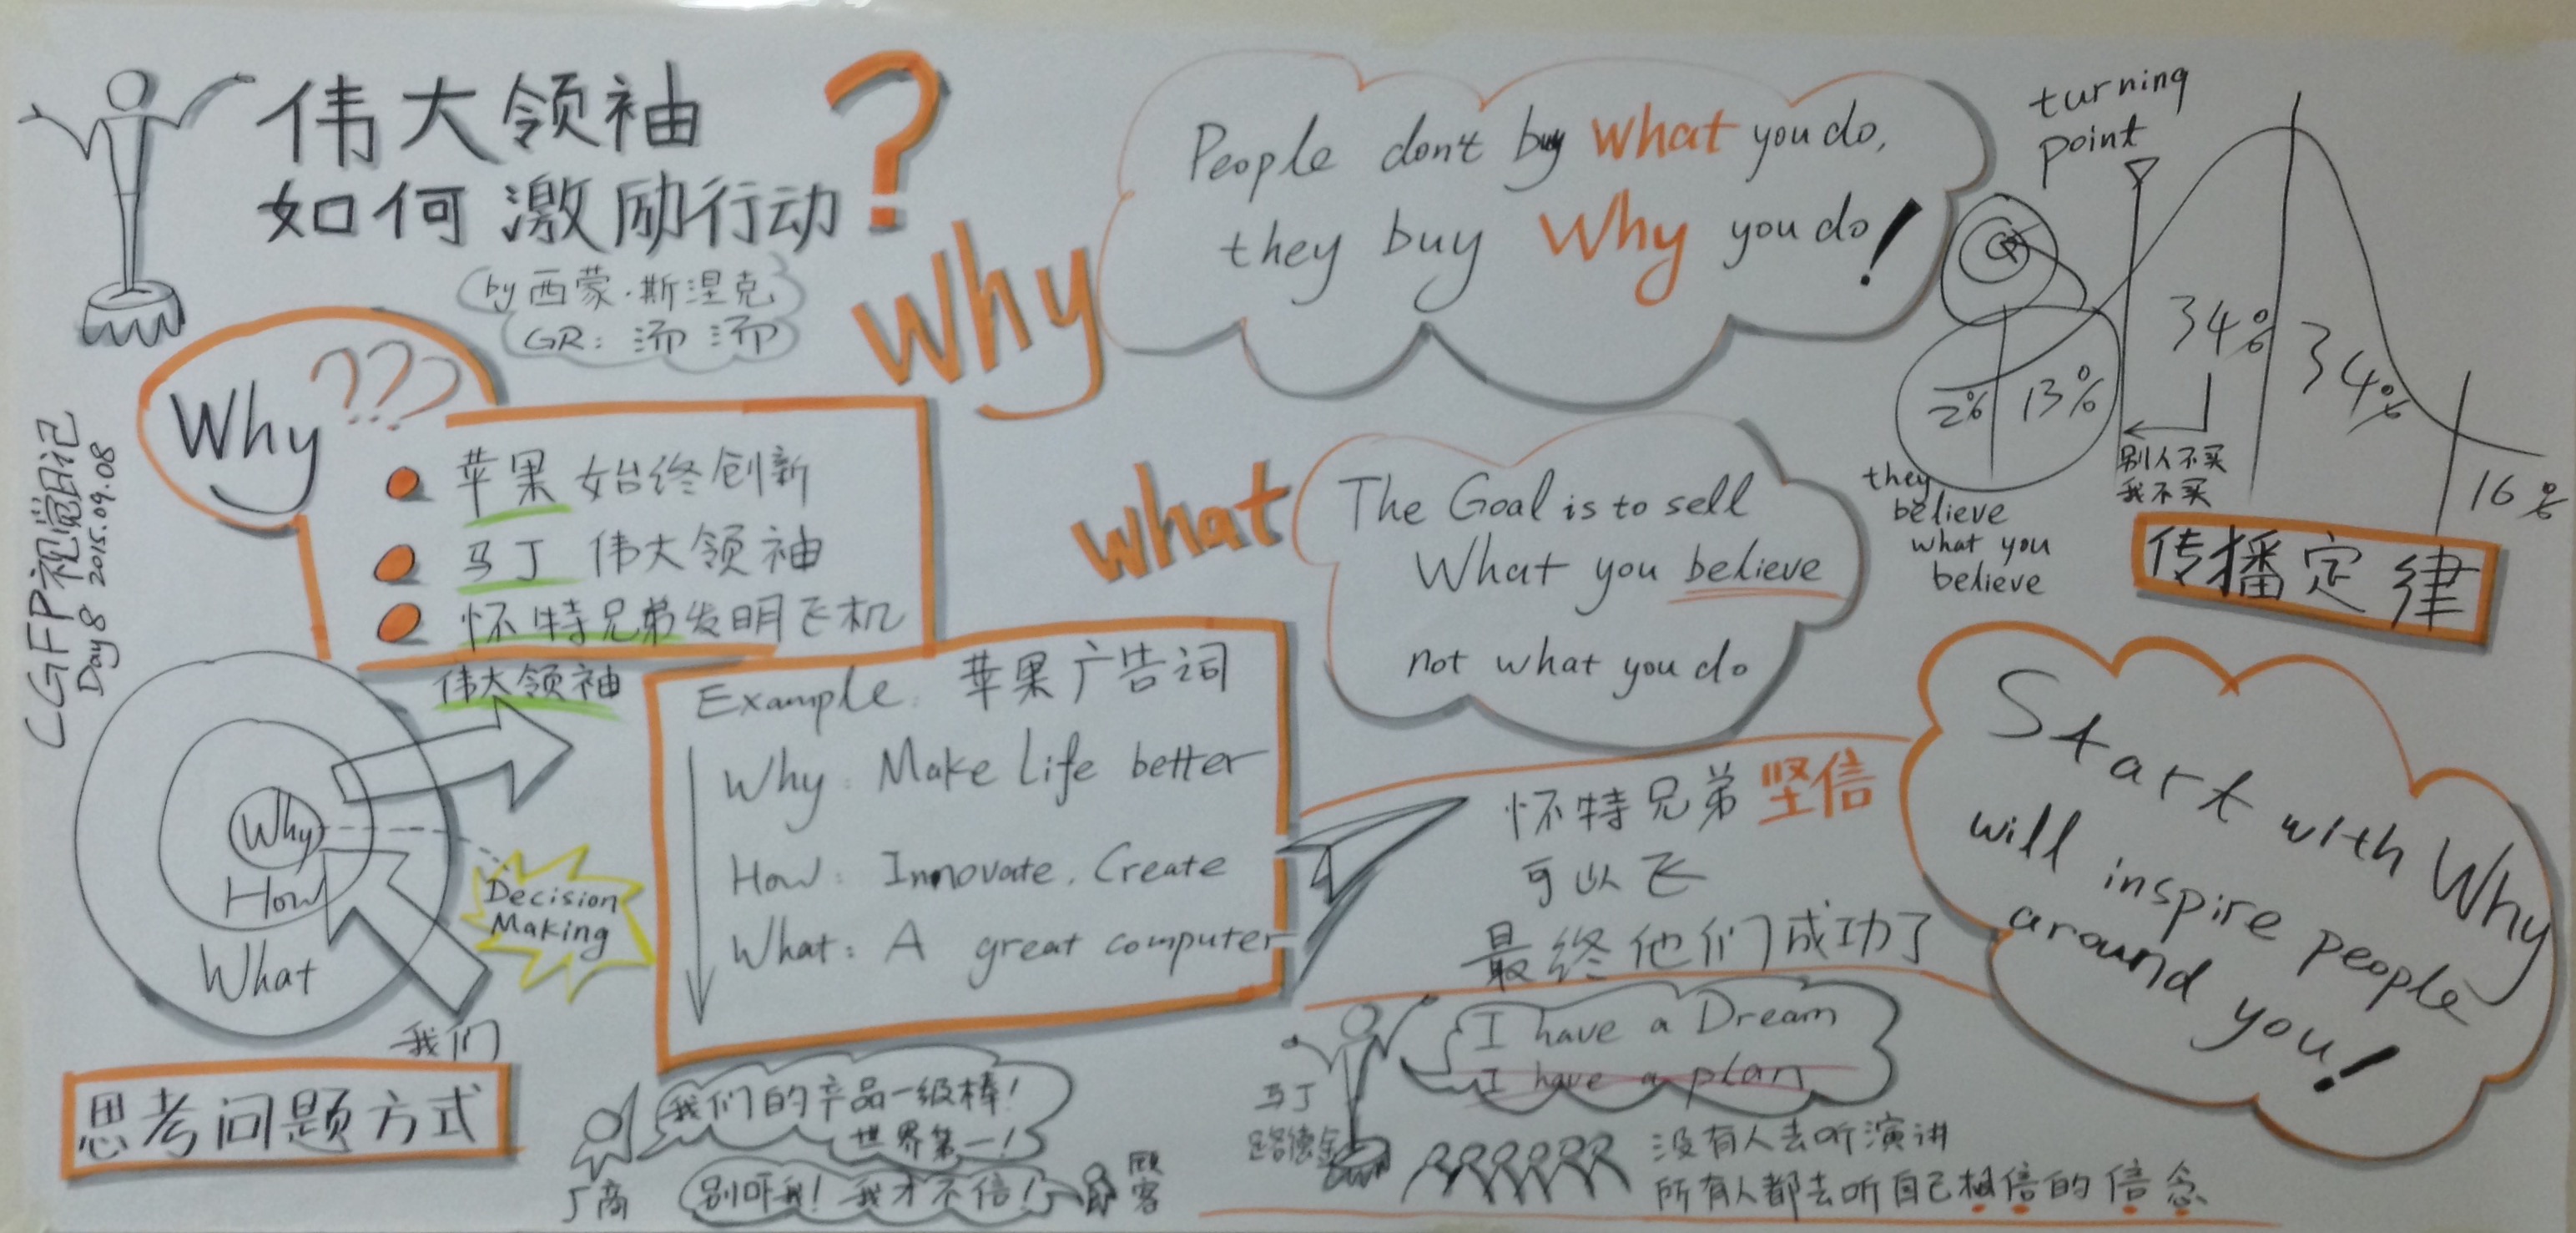 伟大领袖
如何激励行动?
by 西蒙·斯涅克
GR: 汤 汤
CGFP视觉日记
Day 8 2015.09.08
Why ???
苹果 始终创新
马丁 伟大领袖
怀特兄弟发明飞机
Why
People don't buy What you do,
they buy Why you do!
turning
point
2%
13%
34%
34%
16%
别人不买
我不买
they
believe
what you
believe
传播定律
what
The Goal is to sell
What you believe
not what you do
伟大领袖
Why
How
What
Decision
Making
我们
思考问题方式
Example: 苹果广告词
Why: Make Life better
How: Innovate, Create
What: A great computer
怀特兄弟坚信
可以飞
最终他们成功了
Start with Why
will inspire people
around you!
我们的产品一级棒!
世界第一!
厂商
别吓我! 我才不信!
顾客
马丁
路德金
I have a Dream
I have a plan
没有人去听演讲
所有人都去听自己相信的信念